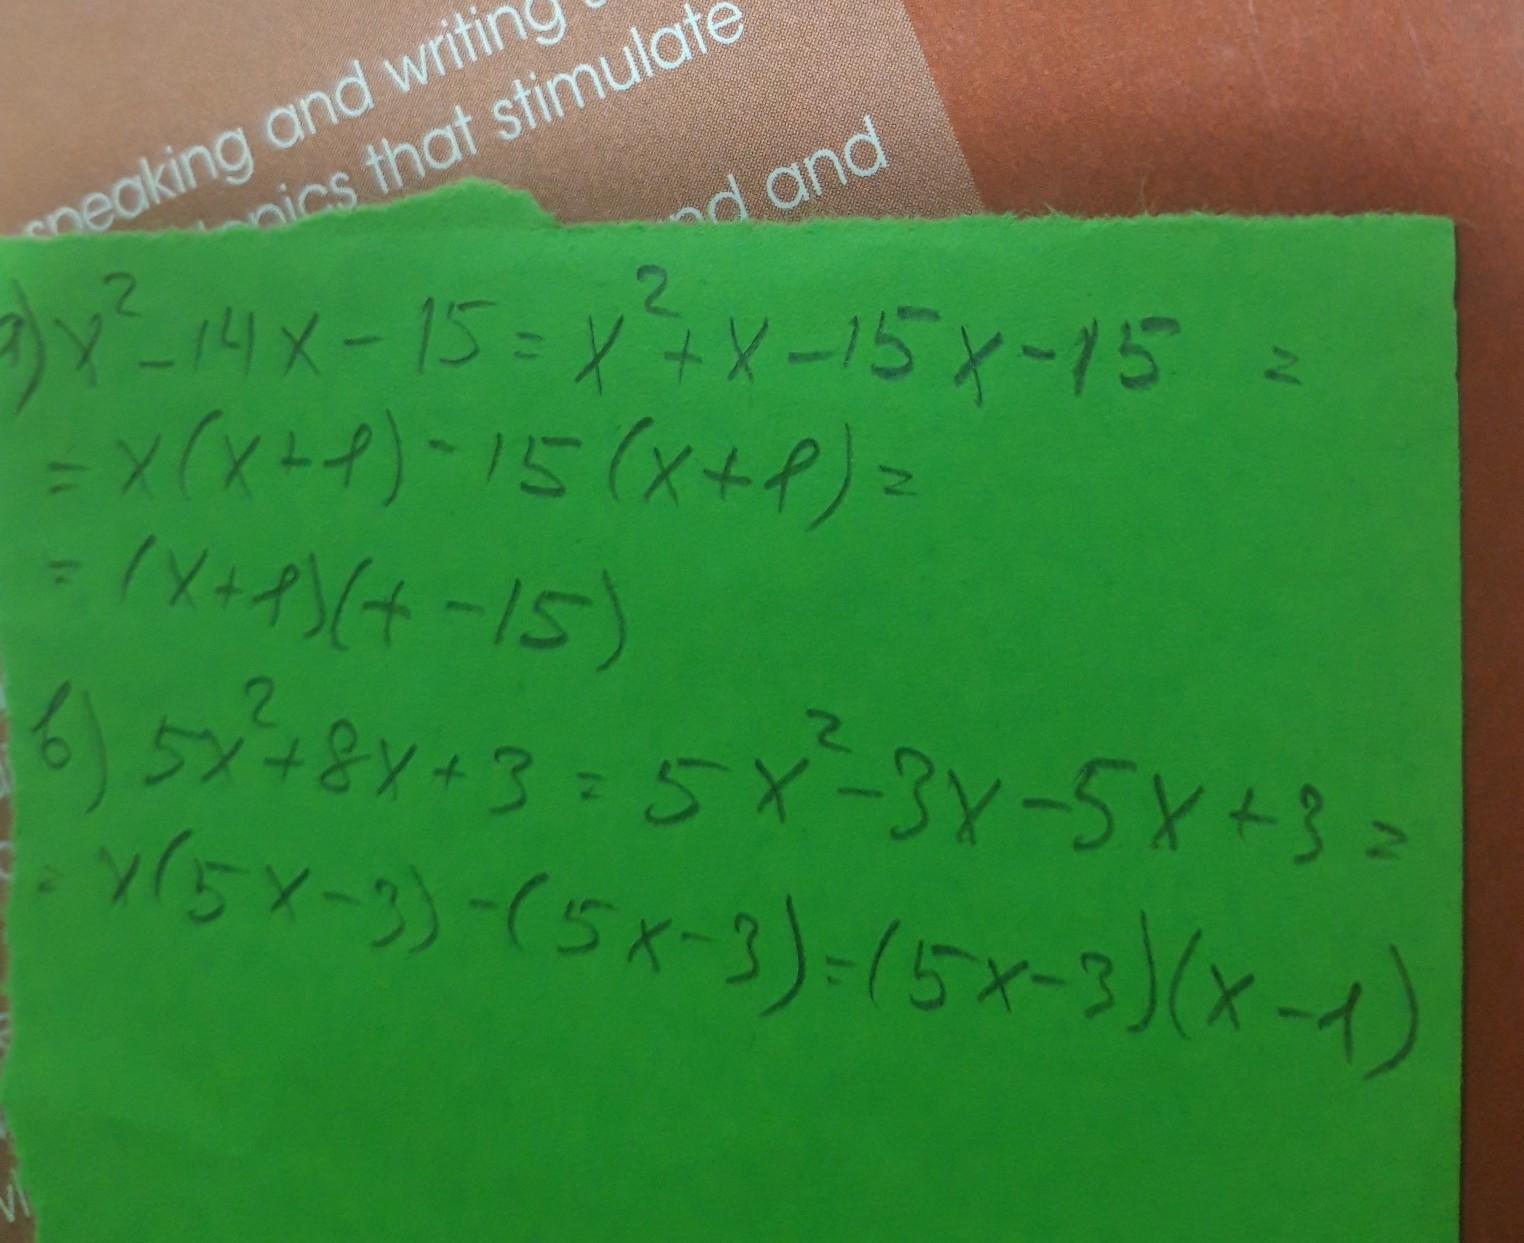 speaking and writing
topics that stimulate
nd and
а) x² - 14x - 15 = x² + x - 15x - 15 =
= x(x+1) - 15(x+1) =
= (x+1)(x - 15)
б) 5x² + 8x + 3 = 5x² - 3x - 5x + 3 =
= x(5x-3) - (5x-3) = (5x-3)(x-1)